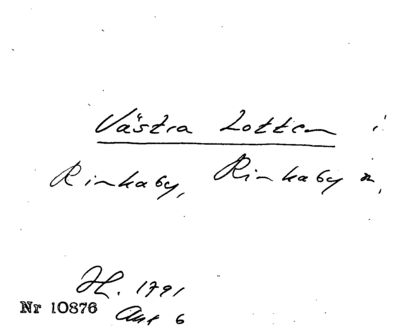 Västra Lotten i
Rinkaby, Rinkaby sn,
Hl. 1791
Nr 10876